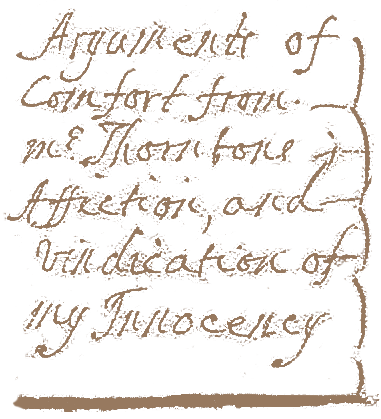 Arguments of
Comfort from
mr Thorntons
Affiction, and
Vindication of
my Innocency